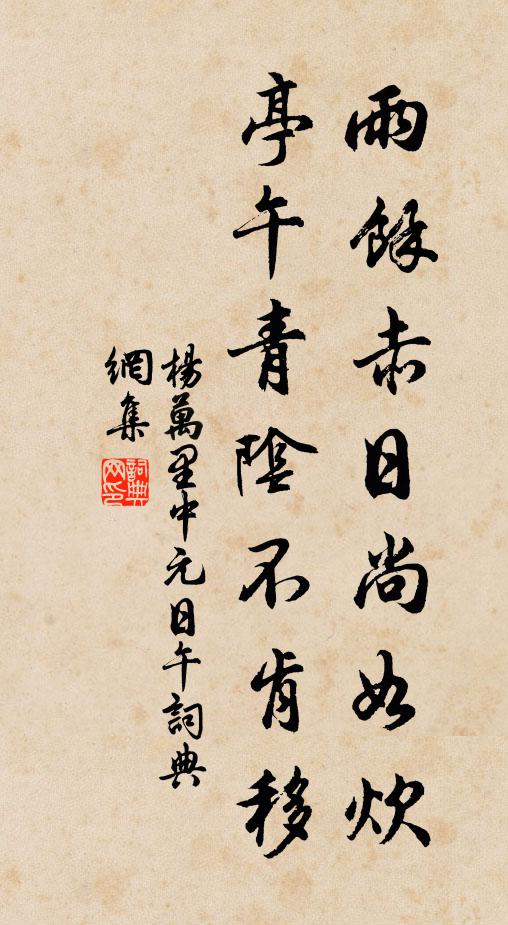 雨餘赤日尚如炊
亭午青陰不肯移
楊萬里中元日午詞典
網集
詞典
网印